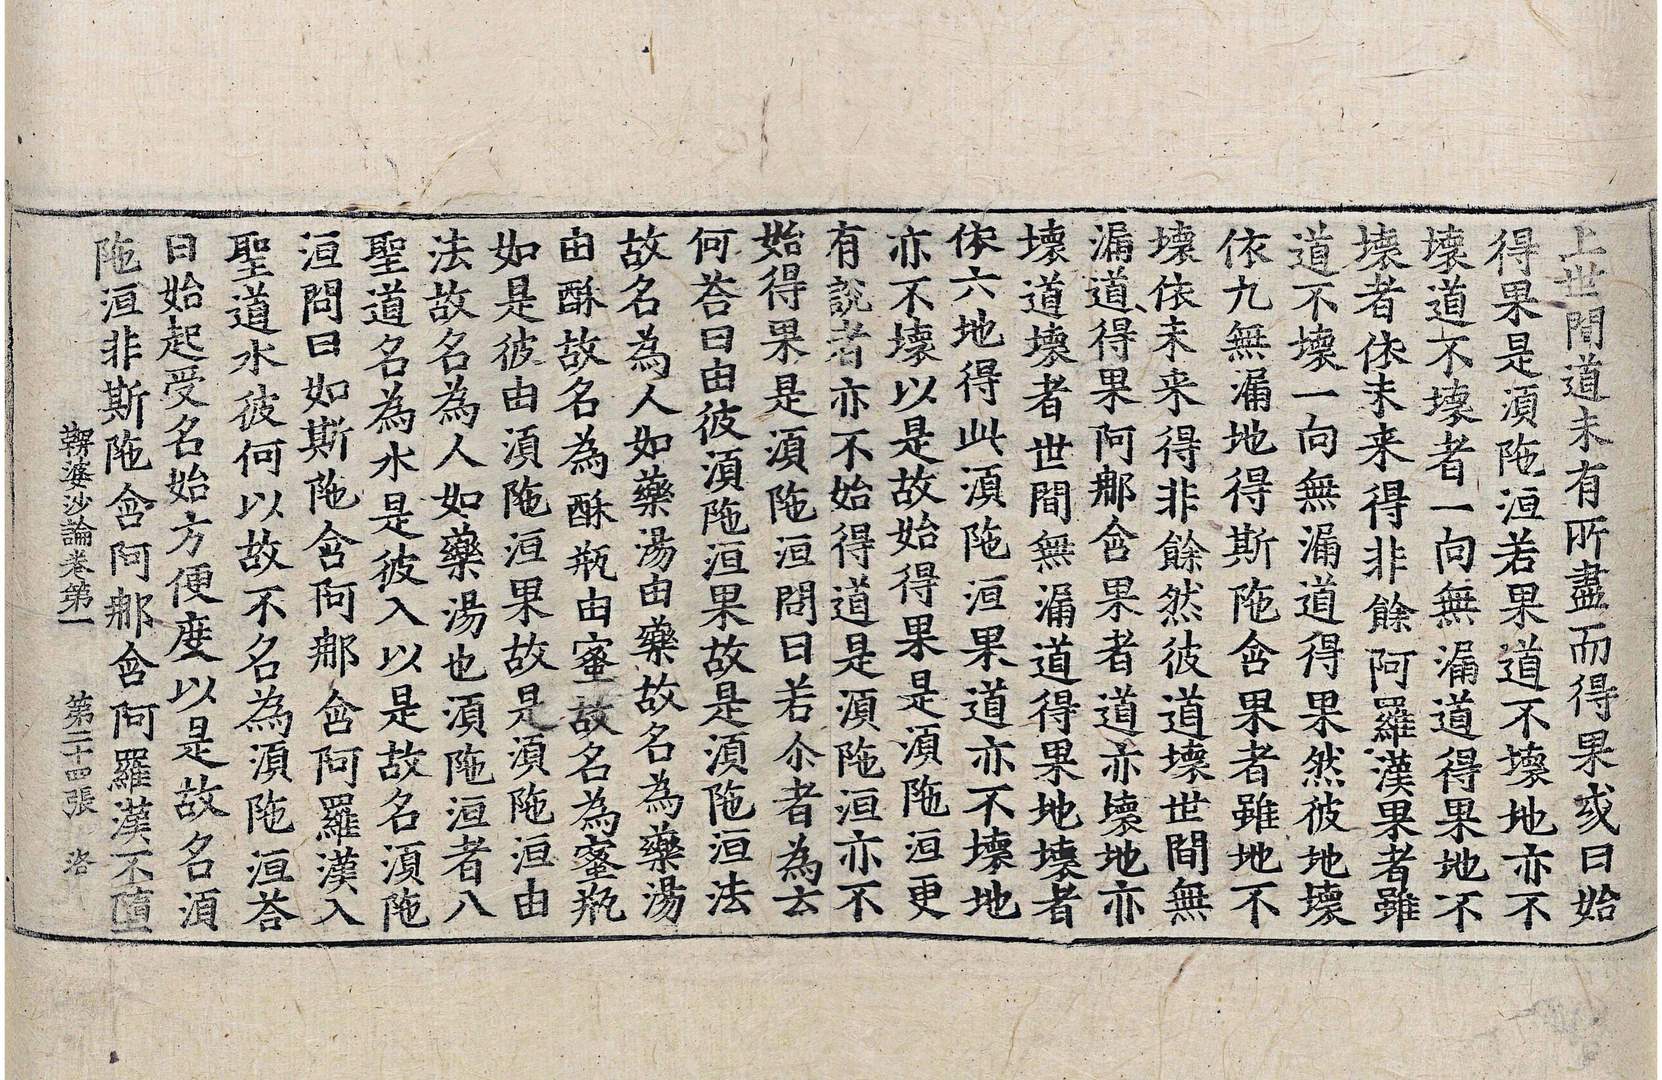 上世間道未有所盡而得果或曰始
得果是湏陁洹若果道不壞地亦不
壞道不壞者一向無漏道得果地不
壞者依未来得非餘阿羅漢果者雖
道不壞一向無漏道得果然彼地壞
依九無漏地得斯陁含果者雖地不
壞依未来得非餘然彼道壞世間無
漏道得果阿那含果者道亦壞地亦
壞道壞者世間無漏道得果地壞者
依六地得此湏陁洹果道亦不壞地
亦不壞以是故始得果是湏陁洹更
有說者亦不始得道是湏陁洹亦不
始得果是湏陁洹問曰若尒者為云
何荅曰由彼湏陁洹果故是湏陁洹法
故名為人如藥湯由藥故名為藥湯
由酥故名為酥瓶由蜜故名為蜜瓶
如是彼由湏陁洹果故是湏陁洹由
法故名為人如藥湯也湏陁洹者八
聖道名為水是彼入以是故名湏陁
洹問曰如斯陁含阿那含阿羅漢入
聖道水彼何以故不名為湏陁洹荅
曰始起受名始方便度以是故名湏
陁洹非斯陁含阿那含阿羅漢不墮
鞞婆沙論卷第一 第二十四張 洛